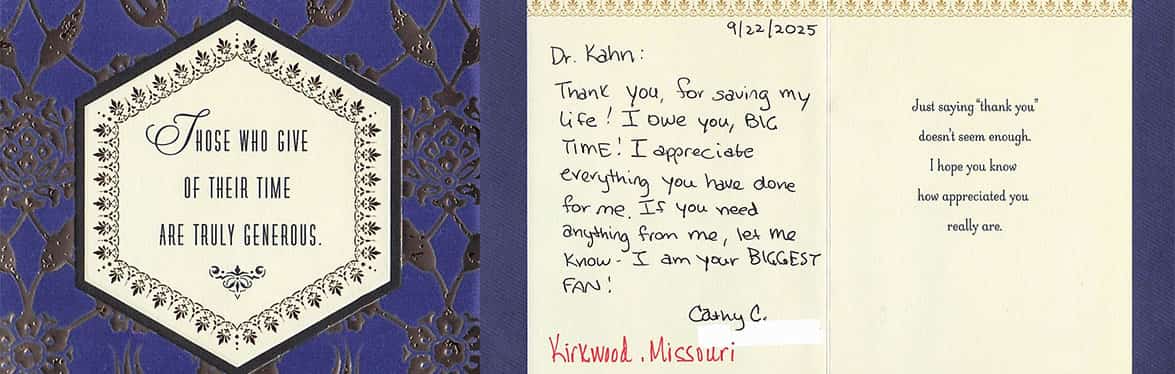 THOSE WHO GIVE
OF THEIR TIME
ARE TRULY GENEROUS.
9/22/2025
Dr. Kahn:
Thank you, for saving my
life! I owe you, BIG
TIME! I appreciate
everything you have done
for me. If you need
anything from me, let me
know - I am your BIGGEST
FAN!
Cathy C.
Kirkwood, Missouri
Just saying "thank you"
doesn't seem enough.
I hope you know
how appreciated you
really are.